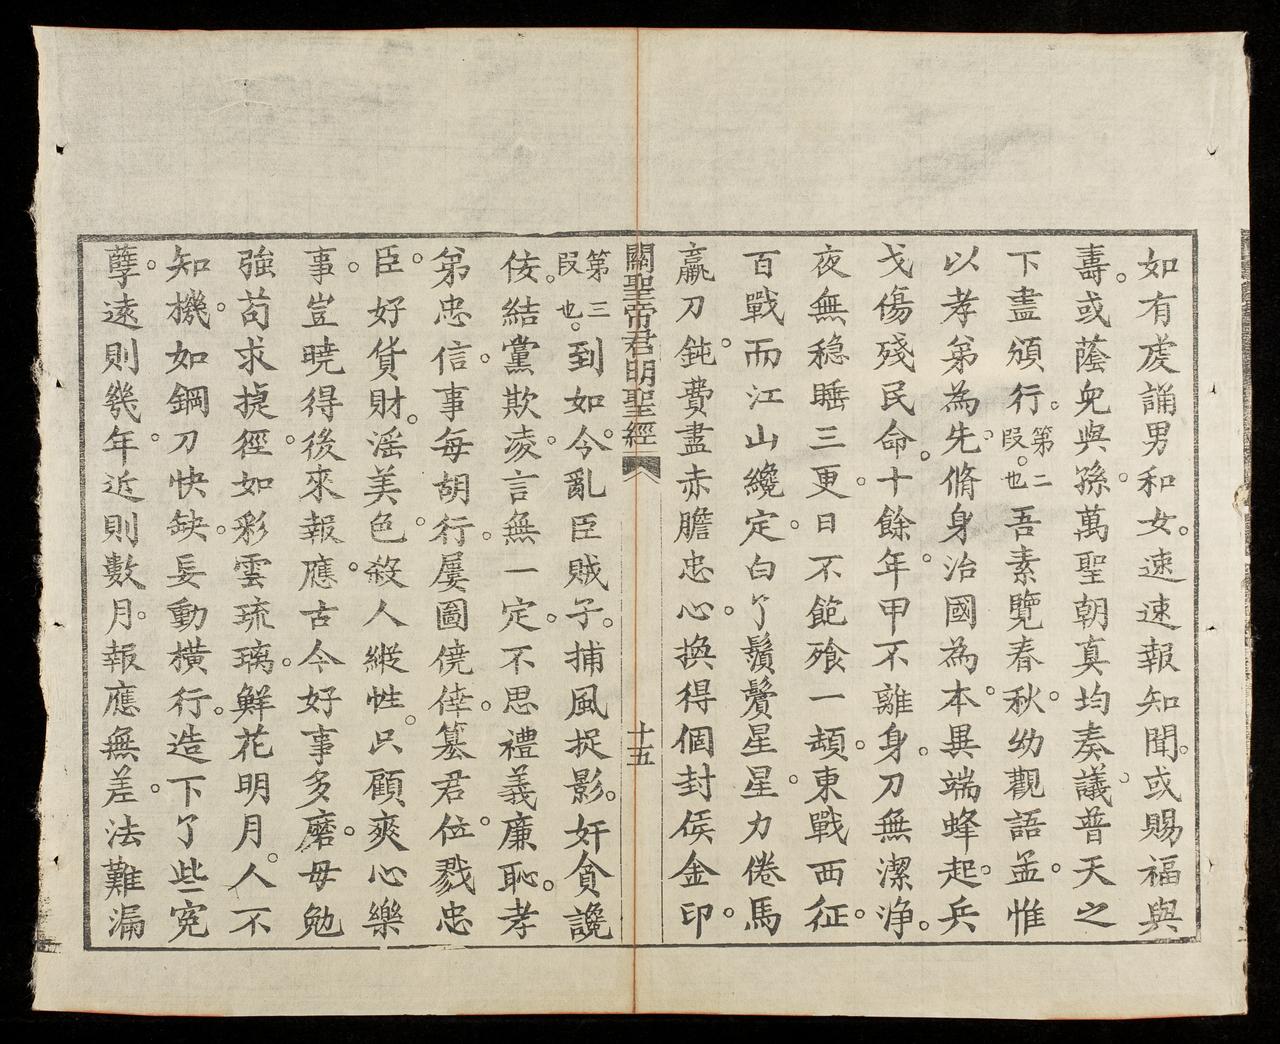 如有虔誦男和女。速速報知聞。或賜福與
壽。或蔭兒與孫。萬聖朝真均奏議。普天之
下盡頒行。第二段也。吾素覽春秋。幼觀語孟。惟
以孝弟為先。脩身治國為本。異端蜂起。兵
戈傷殘民命。十餘年。甲不離身。刀無潔淨。
夜無穩睡三更。日不飽飱一頓。東戰西征。
百戰而江山纔定。白了鬚鬢星星。力倦馬
羸刀鈍。費盡赤膽忠心。換得個封侯金印。
關聖帝君明聖經
十五
第三段也。到如今。亂臣賊子。捕風捉影。奸貪讒
佞。結黨欺凌。言無一定。不思禮義廉恥。孝
弟忠信。事每胡行。屢圖僥倖。篡君位。戮忠
臣。好貨財。淫美色。殺人縱性。只顧爽心樂
事。豈曉得後來報應。古今好事多磨。毋勉
強苟求捷徑。如彩雲琉璃。鮮花明月。人不
知機。如鋼刀快缺。妄動橫行。造下了些冤
孽。遠則幾年。近則數月。報應無差。法難漏